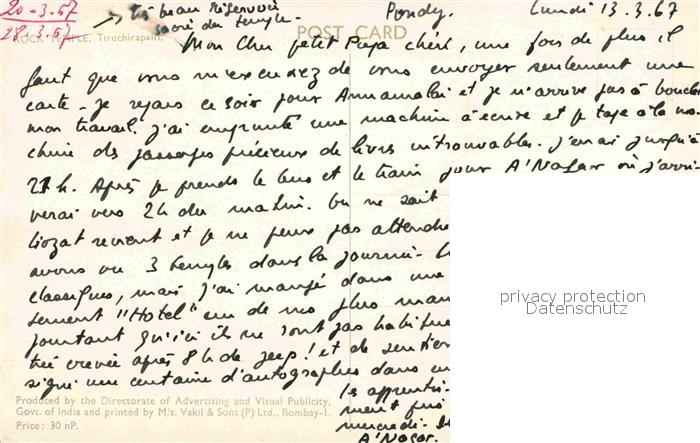 20-3-67
28.3.67
→ très beau réservoir
sacré du temple -
Pondy. Lundi 13.3.67
POST CARD
ROCK TEMPLE, Tiruchirapalli.
Mon cher petit Papa chéri, une fois de plus il
faut que vous m'excusiez de vous envoyer seulement une
carte - je repars ce soir pour Annamalai et je n'arrive pas à boucler
mon travail. J'ai emprunté une machine à écrire et je tape à la ma-
chine des passages précieux de livres introuvables. J'en ai jusqu'à
21h. Après je prends le bus et le train pour A'Nagar où j'arri-
verai vers 2h du matin. On ne sait
revient et je ne peux pas attendre
avons vu 3 temples dans la journée -
classiques, mais j'ai mangé dans une
"Hotel" un de nos plus mau
pourtant qu'ici ils ne sont pas habitué
très crevée après 8h de jeep! et de sentier
signé une centaine d'autographes dans un
les apprenti-
ment puis
mercredi -
A'Nagar.
Produced by the Directorate of Advertising and Visual Publicity,
Govt. of India and printed by M/s. Vakil & Sons (P) Ltd., Bombay-1.
Price: 30 nP.
privacy protection
Datenschutz